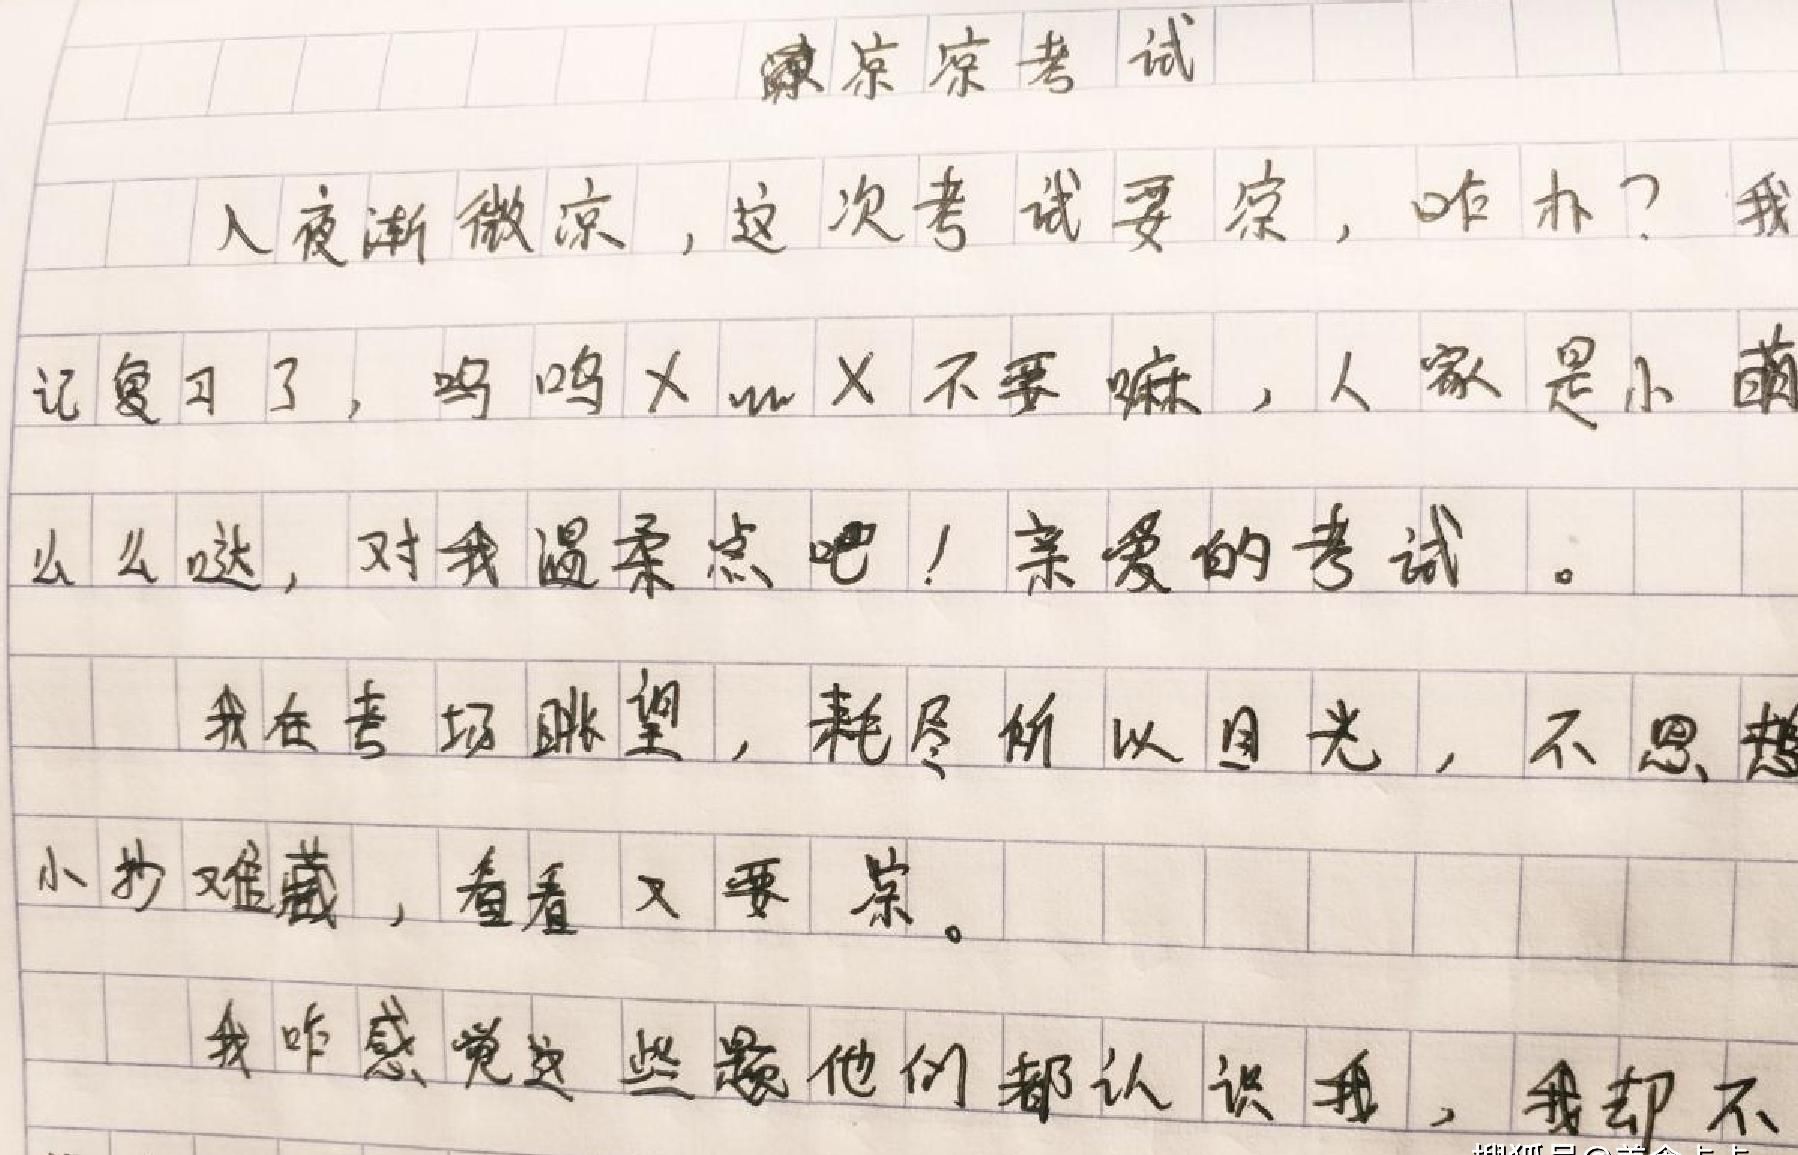 凉凉考试
入夜渐微凉，这次考试要凉，咋办？我
记复习了，呜呜X灬X不要嘛，人家是小萌
么么哒，对我温柔点吧！亲爱的考试。
我在考场眺望，耗尽所以目光，不思想
小抄难藏，看看又要凉。
我咋感觉这些题他们都认识我，我却不